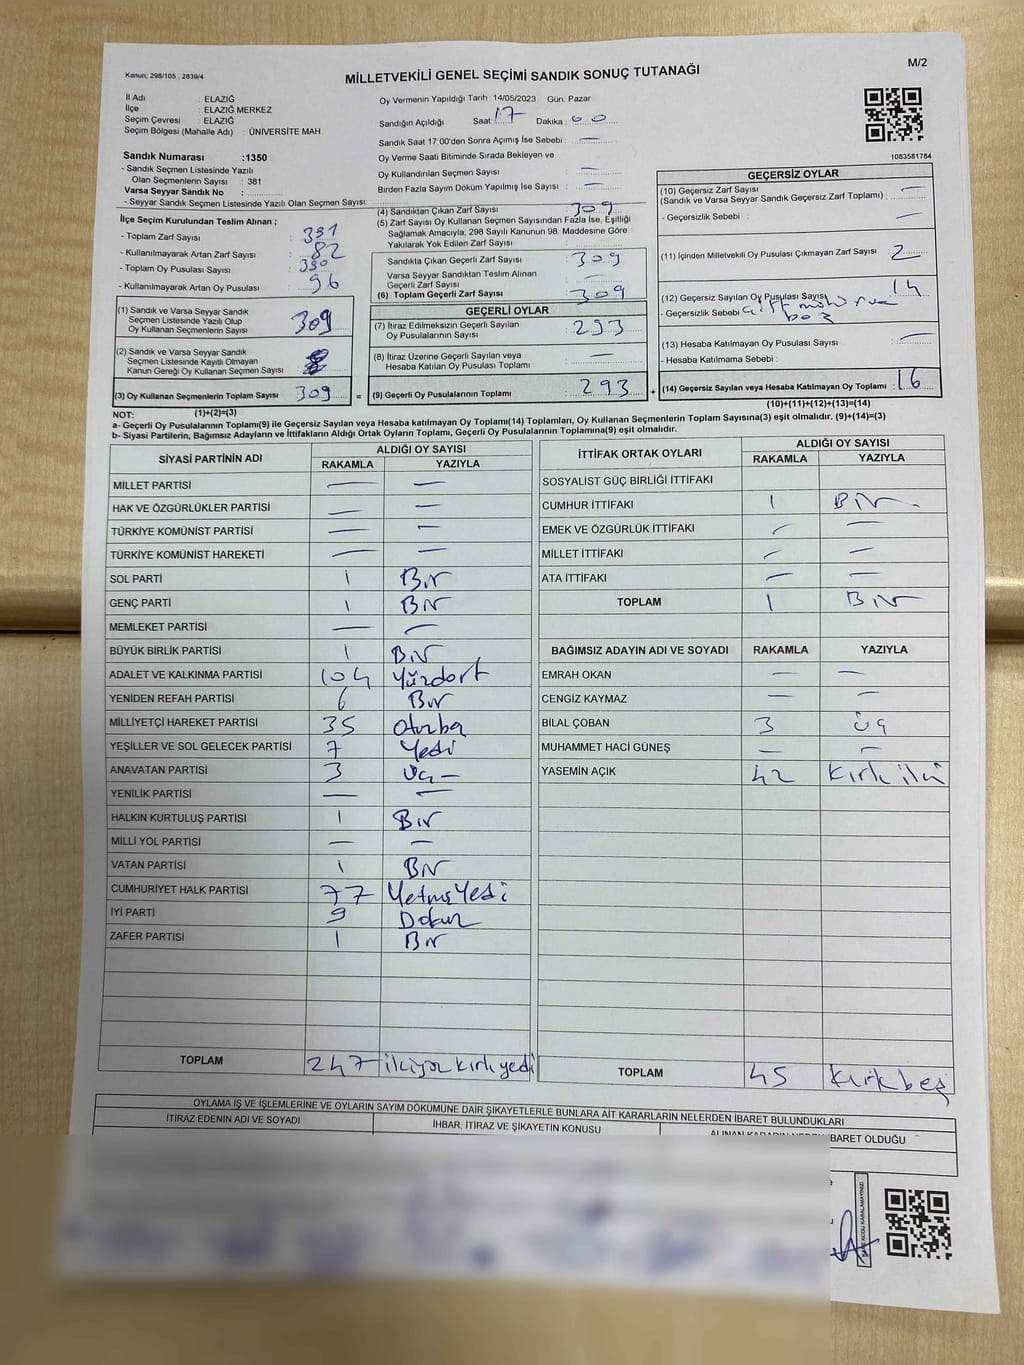 Kanun: 298/105 , 2839/4
MİLLETVEKİLİ GENEL SEÇİMİ SANDIK SONUÇ TUTANAĞI
M/2
İl Adı : ELAZIĞ
İlçe : ELAZIĞ MERKEZ
Seçim Çevresi : ELAZIĞ
Seçim Bölgesi (Mahalle Adı) : ÜNİVERSİTE MAH.
Sandık Numarası :1350
- Sandık Seçmen Listesinde Yazılı
Olan Seçmenlerin Sayısı : 381
Varsa Seyyar Sandık No :
- Seyyar Sandık Seçmen Listesinde Yazılı Olan Seçmen Sayısı:
Oy Vermenin Yapıldığı Tarih :14/05/2023 Gün: Pazar
Sandığın Açıldığı Saat: 17 Dakika: 00
Sandık Saat 17:00'den Sonra Açımış İse Sebebi : —
Oy Verme Saati Bitiminde Sırada Bekleyen ve
Oy Kullandırılan Seçmen Sayısı : —
Birden Fazla Sayım Döküm Yapılmış İse Sayısı : —
1083581784
İlçe Seçim Kurulundan Teslim Alınan ;
- Toplam Zarf Sayısı : 391
- Kullanılmayarak Artan Zarf Sayısı : 82
- Toplam Oy Pusulası Sayısı : 390
- Kullanılmayarak Artan Oy Pusulası : 96
(1) Sandık ve Varsa Seyyar Sandık
Seçmen Listesinde Yazılı Olup
Oy Kullanan Seçmenlerin Sayısı 309
(2) Sandık ve Varsa Seyyar Sandık
Seçmen Listesinde Kayıtlı Olmayan
Kanun Gereği Oy Kullanan Seçmen Sayısı
(3) Oy Kullanan Seçmenlerin Toplam Sayısı 309 =
(1)+(2)=(3)
(4) Sandıktan Çıkan Zarf Sayısı : 309
(5) Zarf Sayısı Oy Kullanan Seçmen Sayısından Fazla İse, Eşitliği
Sağlamak Amacıyla, 298 Sayılı Kanunun 98. Maddesine Göre
Yakılarak Yok Edilen Zarf Sayısı :
Sandıkta Çıkan Geçerli Zarf Sayısı : 309
Varsa Seyyar Sandıktan Teslim Alınan
Geçerli Zarf Sayısı : —
(6) Toplam Geçerli Zarf Sayısı : 309
GEÇERLİ OYLAR
(7) İtiraz Edilmeksizin Geçerli Sayılan
Oy Pusulalarının Sayısı : 293
(8) İtiraz Üzerine Geçerli Sayılan veya
Hesaba Katılan Oy Pusulası Toplamı : —
(9) Geçerli Oy Pusulalarının Toplamı : 293 +
GEÇERSİZ OYLAR
(10) Geçersiz Zarf Sayısı : —
(Sandık ve Varsa Seyyar Sandık Geçersiz Zarf Toplamı)
- Geçersizlik Sebebi : —
(11) İçinden Milletvekili Oy Pusulası Çıkmayan Zarf Sayısı : 2
(12) Geçersiz Sayılan Oy Pusulası Sayısı : 14
- Geçersizlik Sebebi : Çift mühür ve
boş
(13) Hesaba Katılmayan Oy Pusulası Sayısı : —
- Hesaba Katılmama Sebebi :
(14) Geçersiz Sayılan veya Hesaba Katılmayan Oy Toplamı : 16
(10)+(11)+(12)+(13)=(14)
NOT:
a- Geçerli Oy Pusulalarının Toplamı(9) ile Geçersiz Sayılan veya Hesaba katılmayan Oy Toplamı(14) Toplamları, Oy Kullanan Seçmenlerin Toplam Sayısına(3) eşit olmalıdır. (9)+(14)=(3)
b- Siyasi Partilerin, Bağımsız Adayların ve İttifakların Aldığı Ortak Oyların Toplamı, Geçerli Oy Pusulalarının Toplamına(9) eşit olmalıdır.
SİYASİ PARTİNİN ADI ALDIĞI OY SAYISI
RAKAMLA YAZIYLA
MİLLET PARTİSİ — —
HAK VE ÖZGÜRLÜKLER PARTİSİ — —
TÜRKİYE KOMÜNİST PARTİSİ — —
TÜRKİYE KOMÜNİST HAREKETİ — —
SOL PARTİ 1 Bir
GENÇ PARTİ 1 Bir
MEMLEKET PARTİSİ — —
BÜYÜK BİRLİK PARTİSİ 1 Bir
ADALET VE KALKINMA PARTİSİ 104 Yüzdört
YENİDEN REFAH PARTİSİ 6 Bir
MİLLİYETÇİ HAREKET PARTİSİ 35 Otuzbş
YEŞİLLER VE SOL GELECEK PARTİSİ 7 Yedi
ANAVATAN PARTİSİ 3 Üç —
YENİLİK PARTİSİ — —
HALKIN KURTULUŞ PARTİSİ 1 Bir
MİLLİ YOL PARTİSİ — —
VATAN PARTİSİ 1 Bir
CUMHURİYET HALK PARTİSİ 77 Yetmişyedi
İYİ PARTİ 9 Dokuz
ZAFER PARTİSİ 1 Bir
TOPLAM 247 ikiyüz kırkyedi
İTTİFAK ORTAK OYLARI ALDIĞI OY SAYISI
RAKAMLA YAZIYLA
SOSYALİST GÜÇ BİRLİĞİ İTTİFAKI
CUMHUR İTTİFAKI 1 Bir
EMEK VE ÖZGÜRLÜK İTTİFAKI — —
MİLLET İTTİFAKI — —
ATA İTTİFAKI — —
TOPLAM 1 Bir
BAĞIMSIZ ADAYIN ADI VE SOYADI RAKAMLA YAZIYLA
EMRAH OKAN — —
CENGİZ KAYMAZ — —
BİLAL ÇOBAN 3 üç
MUHAMMET HACİ GÜNEŞ — —
YASEMİN AÇIK 42 Kırk iki
TOPLAM 45 Kırk beş
OYLAMA İŞ VE İŞLEMLERİNE VE OYLARIN SAYIM DÖKÜMÜNE DAİR ŞİKAYETLERLE BUNLARA AİT KARARLARIN NELERDEN İBARET BULUNDUKLARI
İTİRAZ EDENİN ADI VE SOYADI
İHBAR, İTİRAZ VE ŞİKAYETİN KONUSU
ALINAN KARARIN NEDEN İBARET OLDUĞU